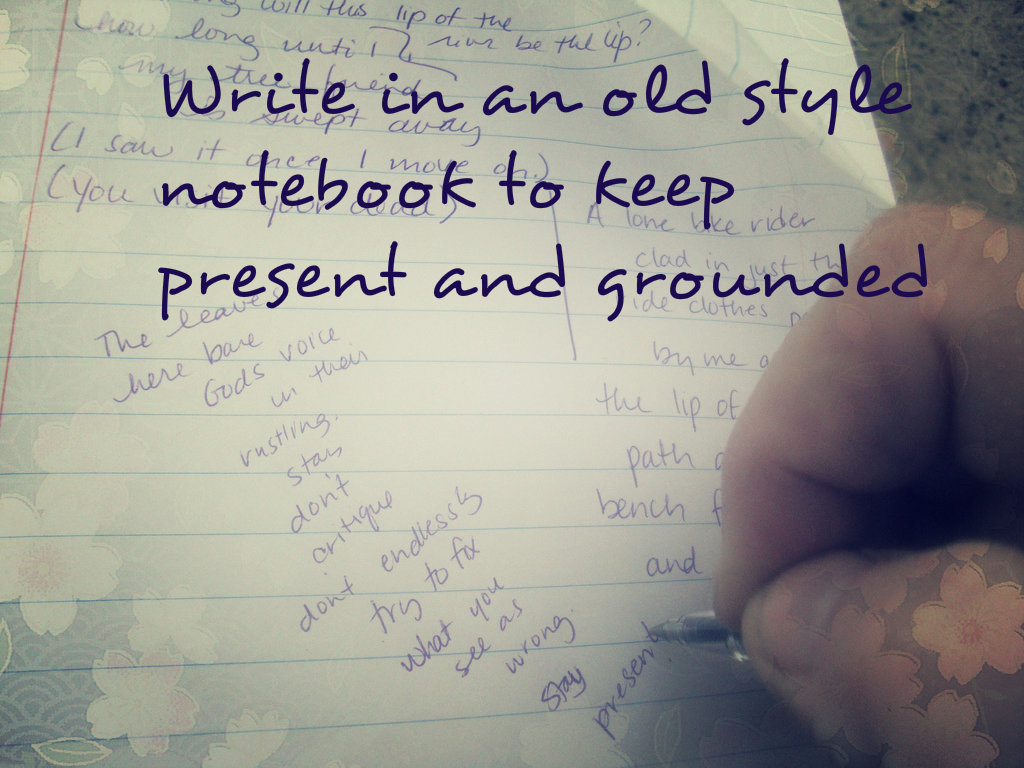 will this lip of the
how long until
river be the lip?
my tree friend
is swept away
(I saw it once I move on.)
(You visit your dead)
Write in an old style
notebook to keep
present and grounded
The leaves
here bare
Gods voice
in their
rustling.
stay
don't
critique
don't endlessly
try to fix
what you
see as
wrong.
Stay
present
A lone bike rider
clad in just th
ride clothes p
by me a
the lip of
path
bench f
and